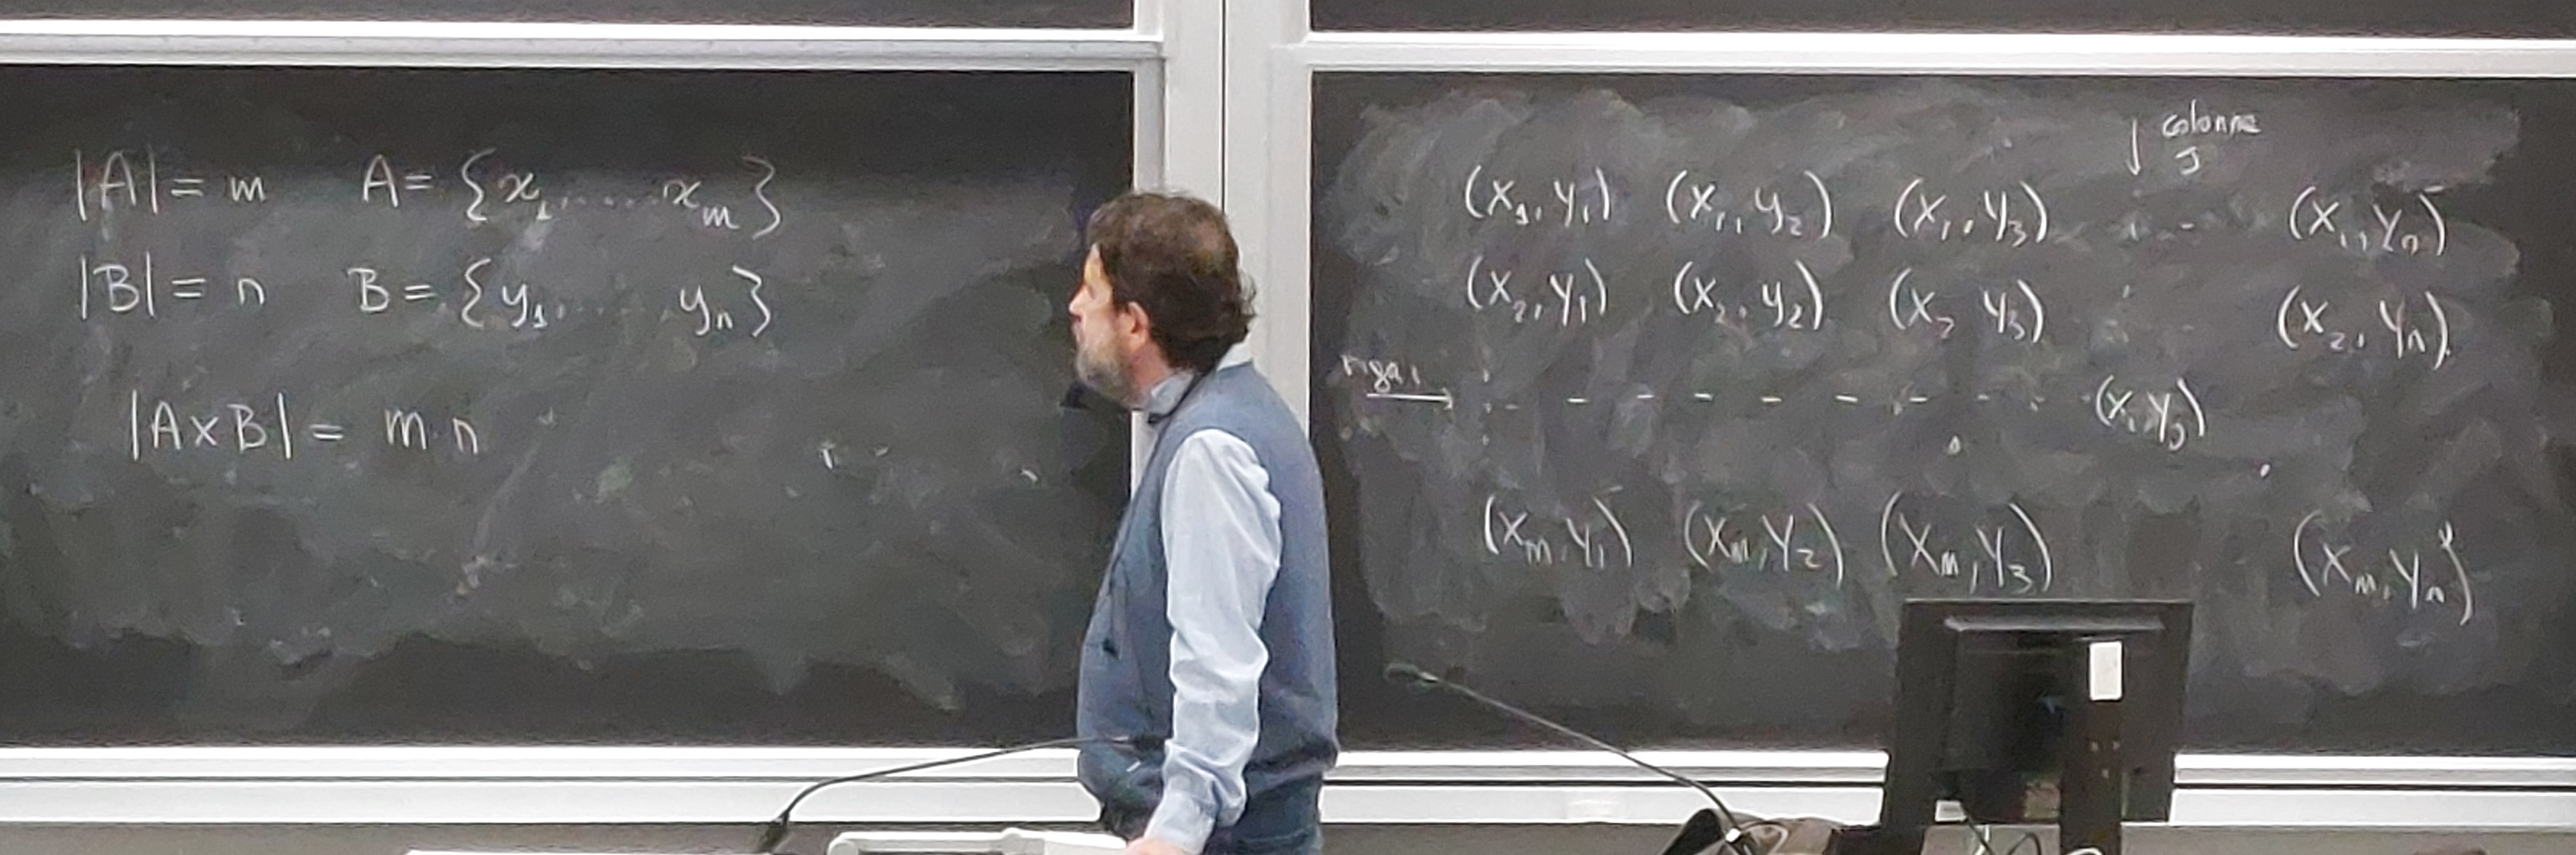 |A| = m A = {x₁, ..... x_m}
|B| = n B = {y₁, ..... y_n}
|A×B| = m·n
↓ colonna
J
(x₁, y₁) (x₁, y₂) (x₁, y₃) ... (x₁, y_n)
(x₂, y₁) (x₂, y₂) (x₂ y₃) (x₂, y_n)
riga i → - - - - - - - - (x_i, y_j)
(x_m, y₁) (x_m, y₂) (x_m, y₃) (x_m, y_n)